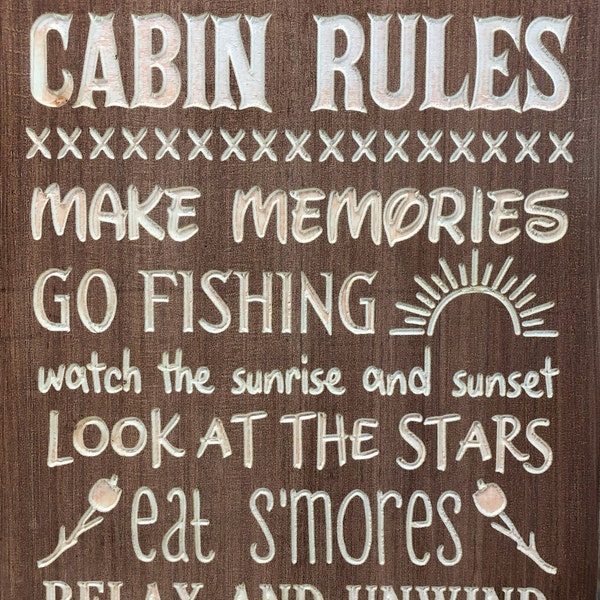 CABIN RULES
XXXXXXXXXXXXXXXXX
MAKE MEMORIES
GO FISHING
watch the sunrise and sunset
LOOK AT THE STARS
eat s'mores
RELAX AND UNWIND